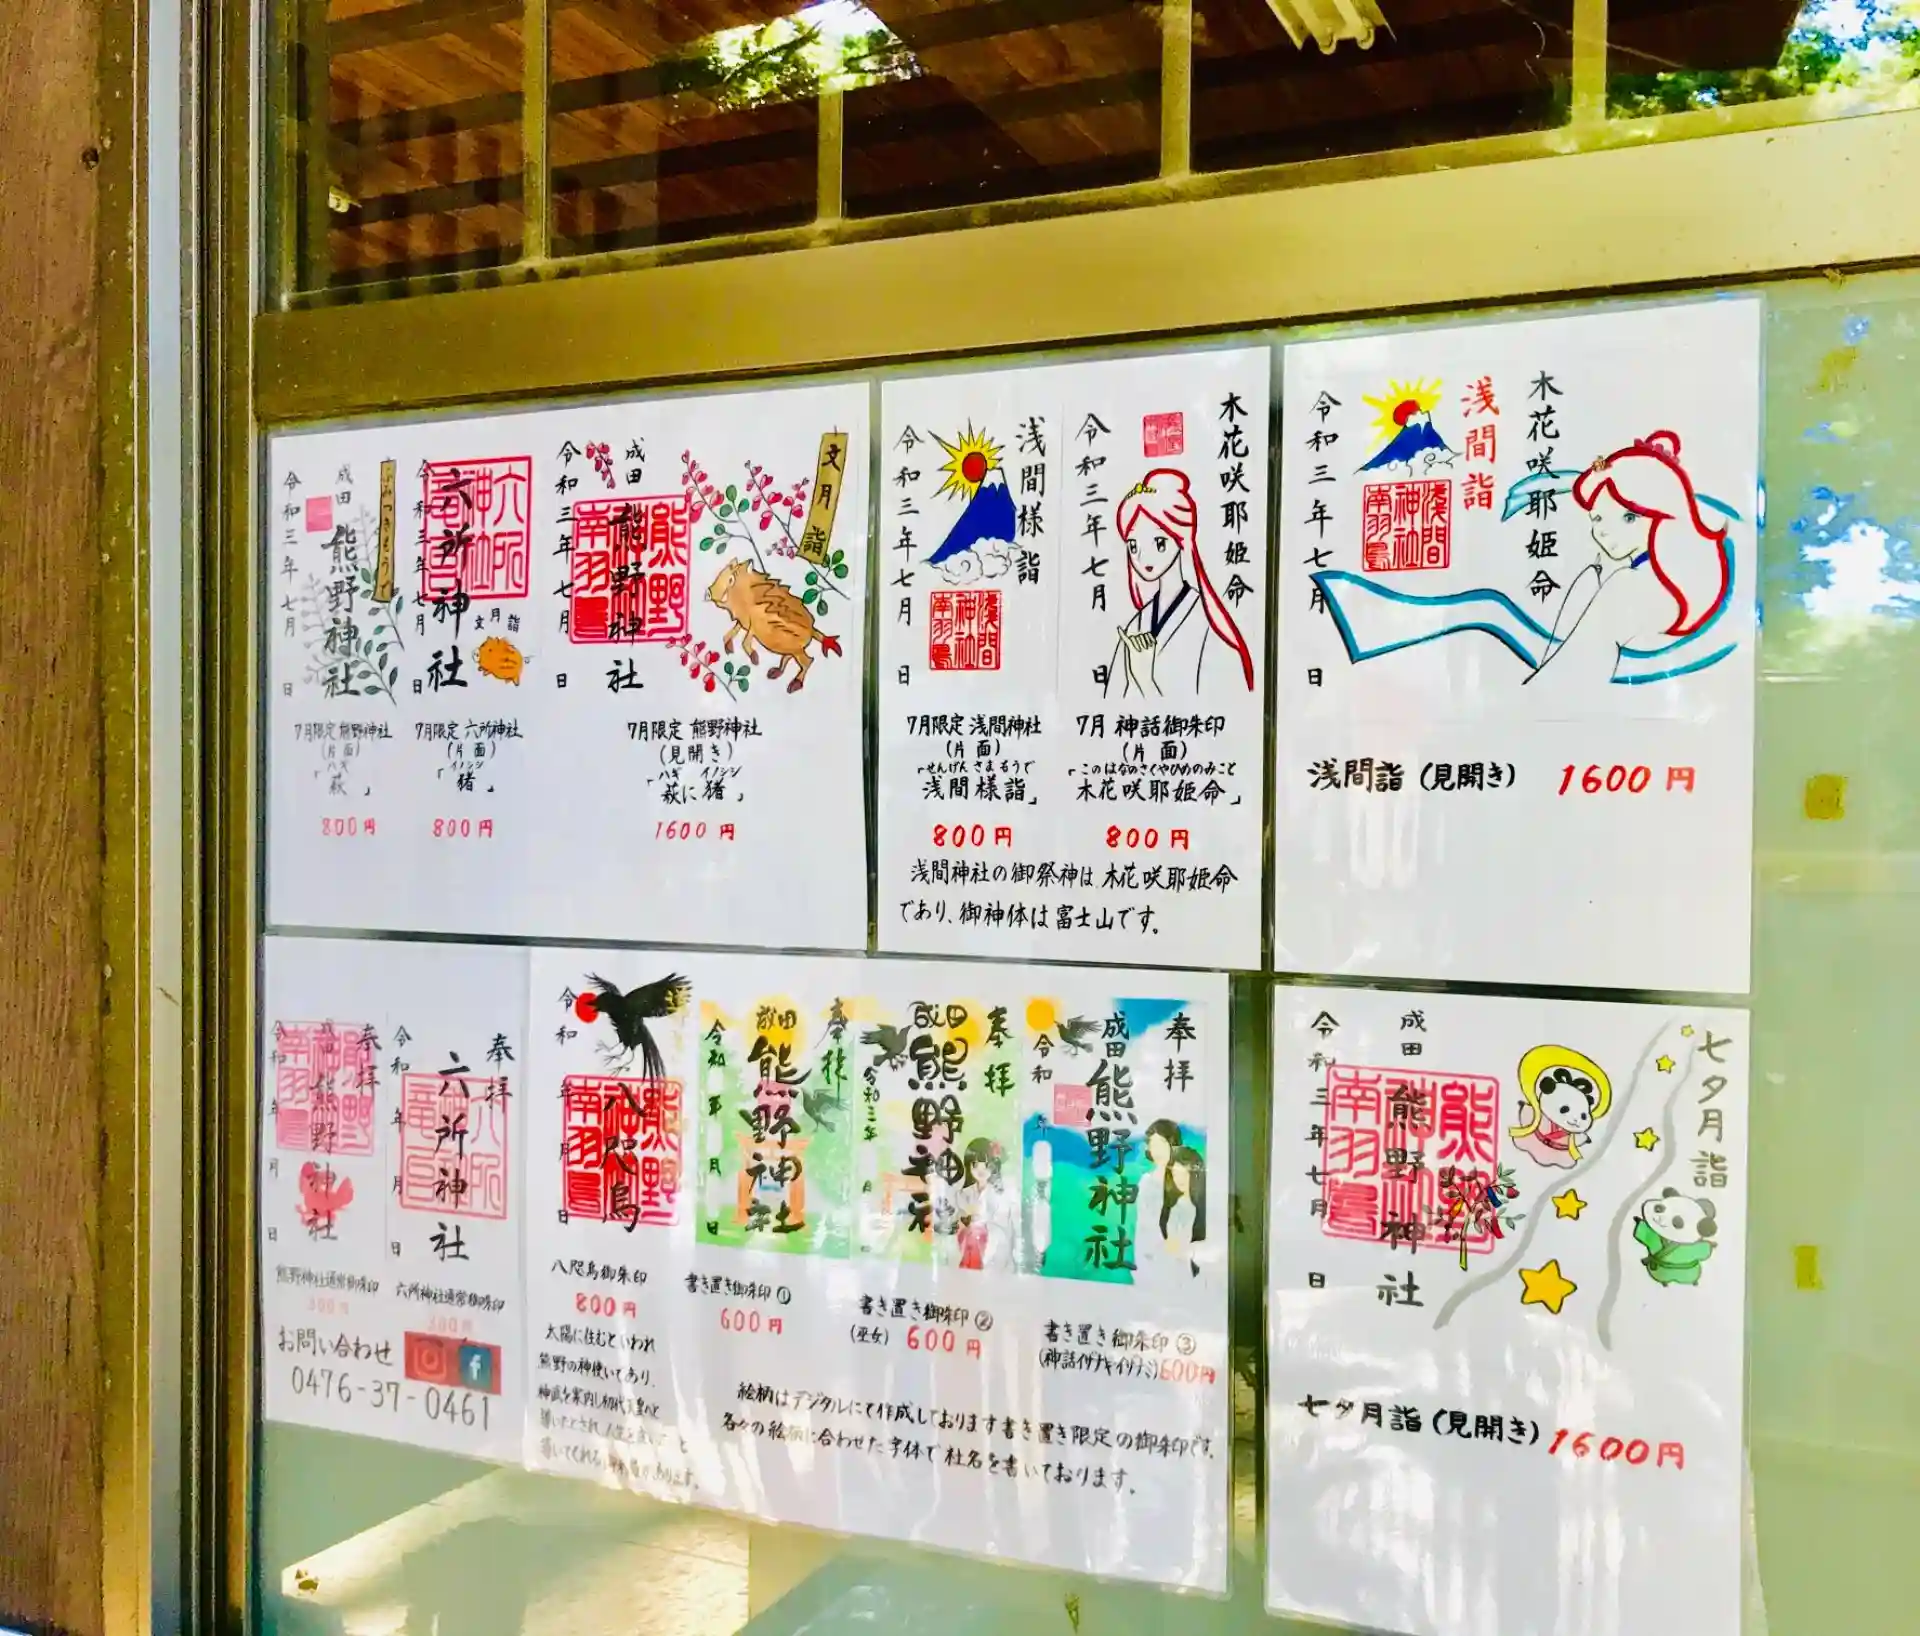 令和三年七月 日
成田
熊野神社
ふみつきもうで
7月限定 熊野神社
(片面)
ハギ
「萩」
800円
令和三年七月 日
六所神社
文月詣
7月限定 六所神社
(片面)
イノシシ
「猪」
800円
令和三年七月 日
成田
熊野神社
文月詣
7月限定 熊野神社
(見開き)
ハギ イノシシ
「萩に猪」
1600円
令和三年七月 日
浅間様詣
浅間神社
南羽鳥
7月限定 浅間神社
(片面)
せんげんさまもうで
「浅間様詣」
800円
令和三年七月 日
木花咲耶姫命
7月 神話御朱印
(片面)
このはなのさくやひめのみこと
「木花咲耶姫命」
800円
浅間神社の御祭神は、木花咲耶姫命
であり、御神体は富士山です。
令和三年七月 日
浅間詣
浅間神社
南羽鳥
木花咲耶姫命
浅間詣 (見開き) 1600円
奉拝
熊野神社
令和 年 月 日
熊野神社通常御朱印
300円
奉拝
六所神社
令和 年 月 日
六所神社通常御朱印
300円
お問い合わせ
0476-37-0461
令和 年 月 日
八咫烏
八咫烏御朱印
800円
太陽に住むといわれ
熊野の神使いであり、
奉拝
成田
熊野神社
令和 年 月 日
書き置き御朱印①
600円
奉拝
成田
熊野神社
令和三年 月 日
書き置き御朱印②
(巫女) 600円
奉拝
成田
熊野神社
令和 年
書き置き御朱印③
(神話イザナギイザナミ)600円
絵柄はデジタルにて作成しております書き置き限定の御朱印です。
各々の絵柄に合わせた字体で社名を書いております。
令和三年七月 日
成田
熊野神社
七夕月詣
七夕月詣 (見開き) 1600円